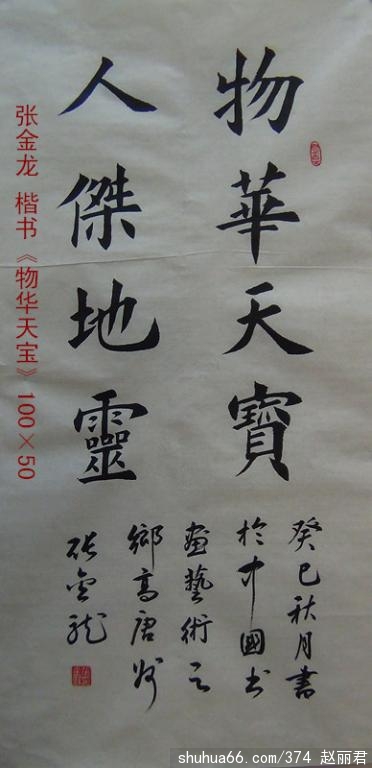 物華天寶
人傑地靈
癸巳秋月書
於中國书
画藝術之
鄉高唐州
张金龙
张金龙 楷书《物华天宝》100×50
shuhua66.com/374 赵丽君